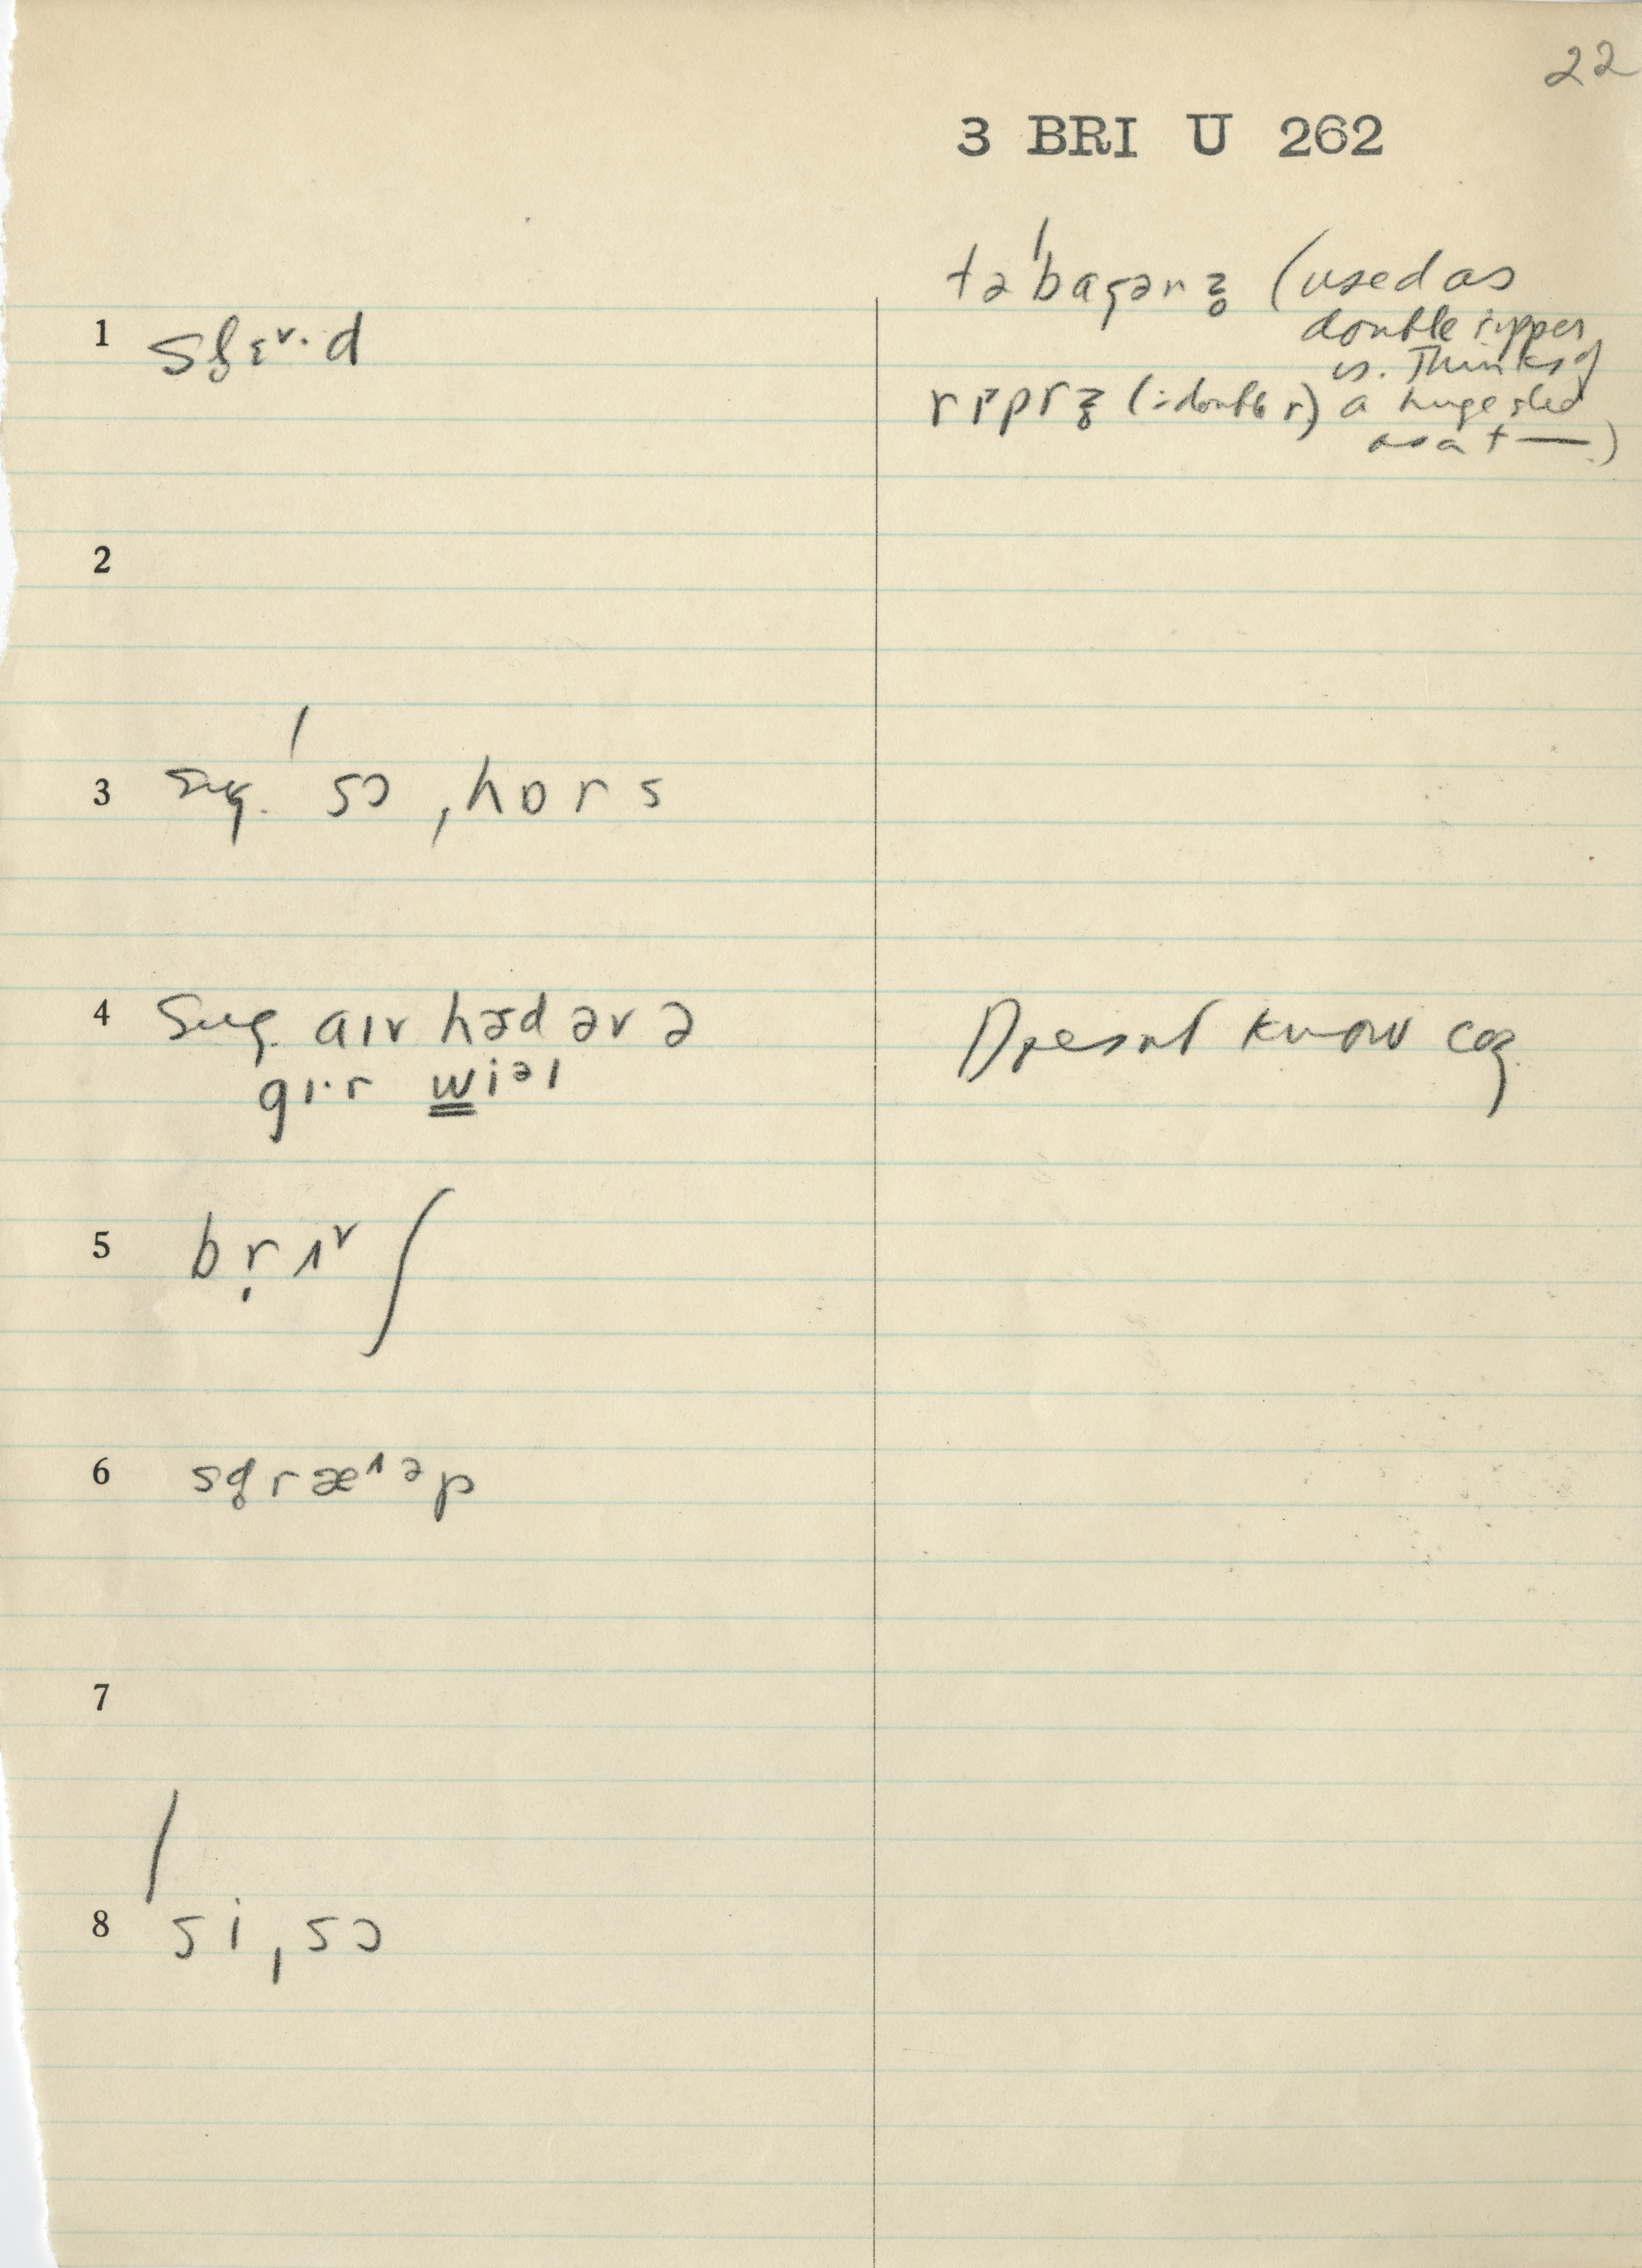 22
3 BRI U 262
təˈbagənz̥ (used as
double ripper
is. Thinks of
a huge sled
as a t —.)
rɪpɚz̥ (= double r)
1
2
3 Sug. ˈsɔ ˌhɒrs
4 Sug. aɪv hɜd əv ə
gɪ·r wiəl
Doesnt know cog
5 brɪ^v ʃ
6 sgræ^ɪəp
7
8 ˈsi ˌsɔ